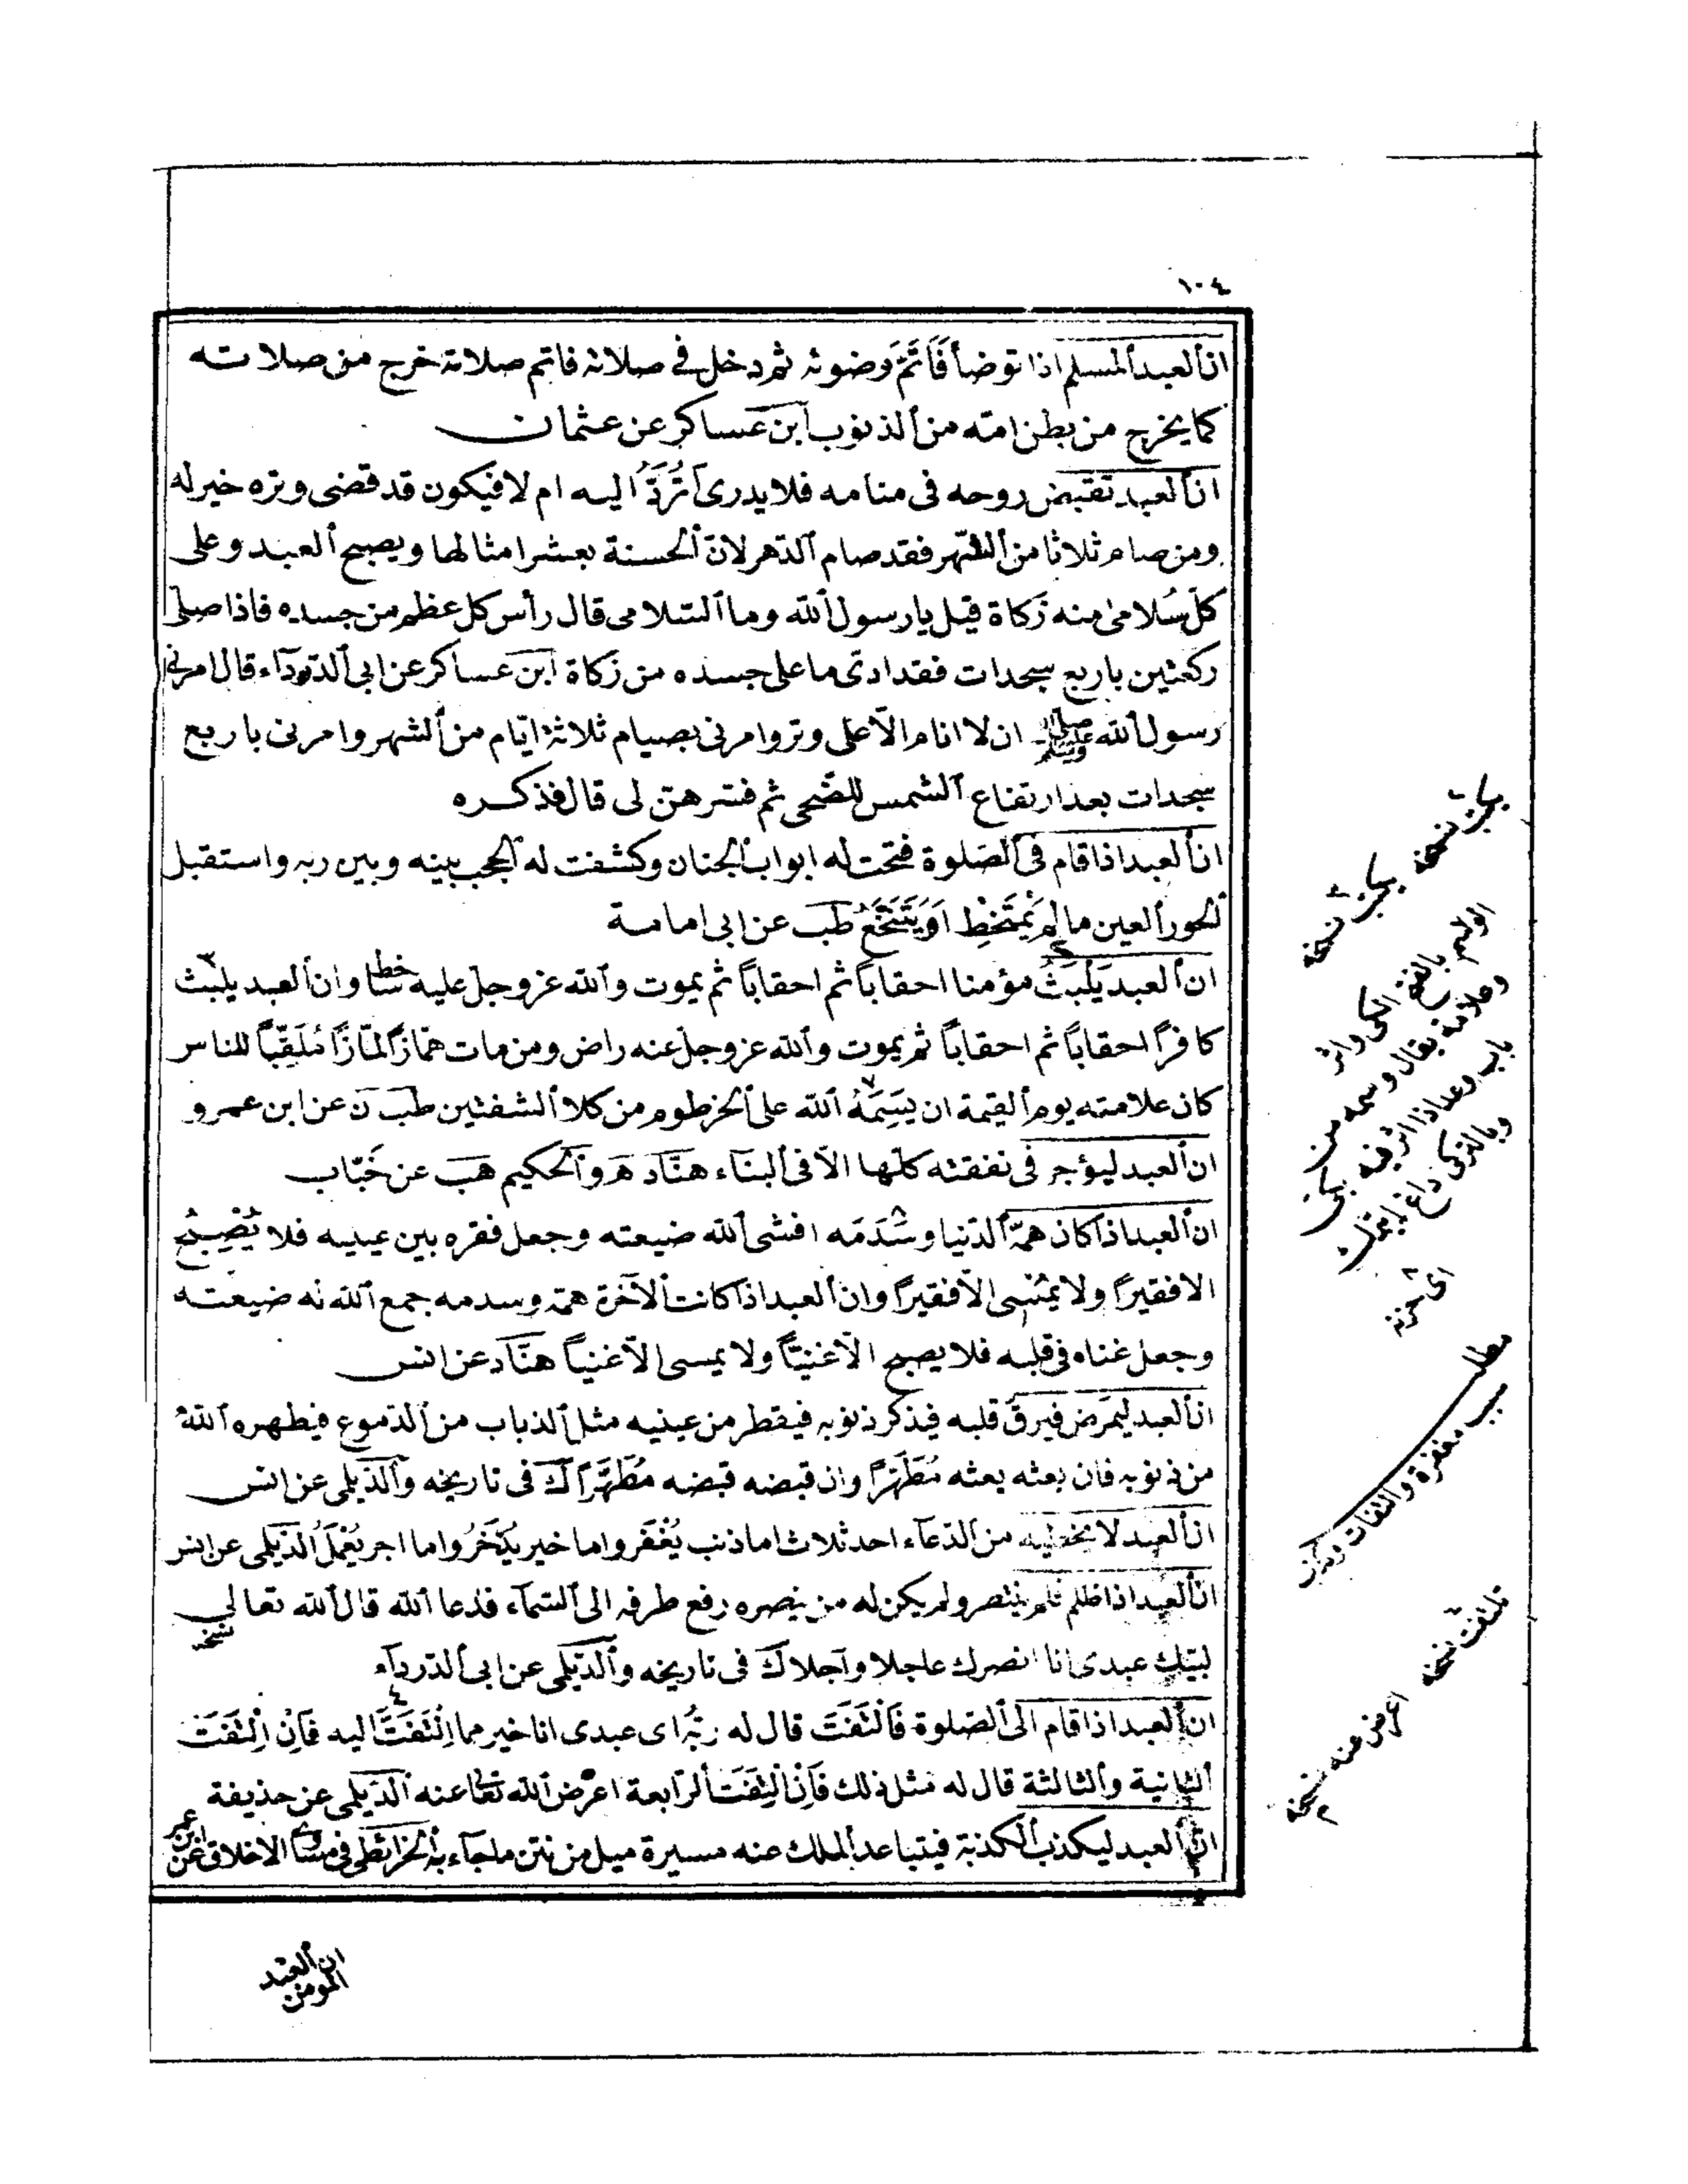 ١٠٤
ان العبد المسلم اذا توضأ فَاَتَمَّ وضوئه ثم دخل فى صلاته فاتم صلاته خرج من صلاته
كما يخرج من بطن امّه من الذنوب ابن عساكر عن عثمان
ان العبد تقبض روحه فى منامه فلا يدرى اَتُرَدُّ اليه ام لا فيكون قد قضى وتره خير له
ومن صام ثلاثا من الشّهر فقد صام الدّهر لانّ الحسنة بعشر امثالها ويصبح العبد وعلى
كلّ سُلامى منه زكاة قيل يا رسول الله وما السّلامى قال رأس كل عظم من جسده فاذا صلى
ركعتين باربع سجدات فقد ادّى ما على جسده من زكاة ابن عساكر عن ابى الدّرداء قال امرنى
رسول الله صلى الله عليه وسلم ان لا انام الّا على وتر وامرنى بصيام ثلاثة ايّام من الشهر وامرنى باربع
سجدات بعد ارتفاع الشمس للضّحى ثم فسّرهنّ لى قال فذكره
ان العبد اذا قام فى الصّلوة فتحت له ابواب الجنان وكشفت له الحجب بينه وبين ربه واستقبل
الحور العين ما لم يَمْتَخِطْ اَوْ يَتَنَخَّعْ طب عن ابى امامة
ان العبد يَلْبَثُ مؤمنا احقاباً ثم احقاباً ثم يموت والله عز وجل عليه ساخط وان العبد يلبث
كافرًا احقاباً ثم احقاباً ثم يموت والله عز وجل عنه راض ومن مات همّازًا لمّازًا مُلَقِّبًا للناس
كان علامته يوم القيمة ان يَسِمَهُ الله على الخرطوم من كلا الشفتين طب ن عن ابن عمرو
ان العبد ليؤجر فى نفقته كلّها الّا فى البناء هنّاد هـ والحكيم هب عن خَبّاب
ان العبد اذا كان همّه الدّنيا وسَدَمَه افشى الله ضيعته وجعل فقره بين عينيه فلا يُصْبِحُ
الا فقيرًا ولا يُمْسِى الّا فقيرًا وان العبد اذا كانت الآخرة همّه وسدمه جمع الله له ضيعته
وجعل غناه فى قلبه فلا يصبح الّا غنيًّا ولا يمسى الّا غنياً هنّاد عن انس
ان العبد ليمرض فيرقّ قلبه فيذكر ذنوبه فيقطر من عينيه مثل الذباب من الدّموع فيطهره الله
من ذنوبه فان بعثه بعثه مُطَهَّرًا وان قبضه قبضه مُطَهَّرًا ك فى تاريخه والدّيلمى عن انس
ان العبد لا يخطيه من الدّعاء احد ثلاث اما ذنب يُغْفَر واما خير يُدَّخَرُ واما اجر يُعْمَلُ الدّيلمى عن انس
ان العبد اذا ظلم فلم ينتصر ولم يكن له من ينصره رفع طرفه الى السّماء فدعا الله قال الله تعالى
لبّيك عبدى انا انصرك عاجلا وآجلا ك فى تاريخه والدّيلمى عن ابى الدّرداء
ان العبد اذا قام الى الصّلوة فَالْتَفَتَ قال له ربّه اى عبدى انا خير مما اِلْتَفَتَّ اليه فَاِنْ اِلْتَفَتَ
الثانية والثالثة قال له مثل ذلك فَاِنْ اِلْتَفَتَ الرّابعة اعرض الله تعالى عنه الدّيلمى عن حذيفة
انّ العبد ليكذب الكذبة فيتباعد الملك عنه مسيرة ميل من نتن ما جاء به الخرائطى فى مساوى الاخلاق عن ابن عمر
ان العبد
المؤمن
الوسم بالفتح الكى واثر
وعلامة يقال وسمه من
باب وعد اذا اثر فيه بكى
اى حزنه
مطلب
سبب مغفرة والتفات
تلتفت نسخه
اعرض عنه نسخه